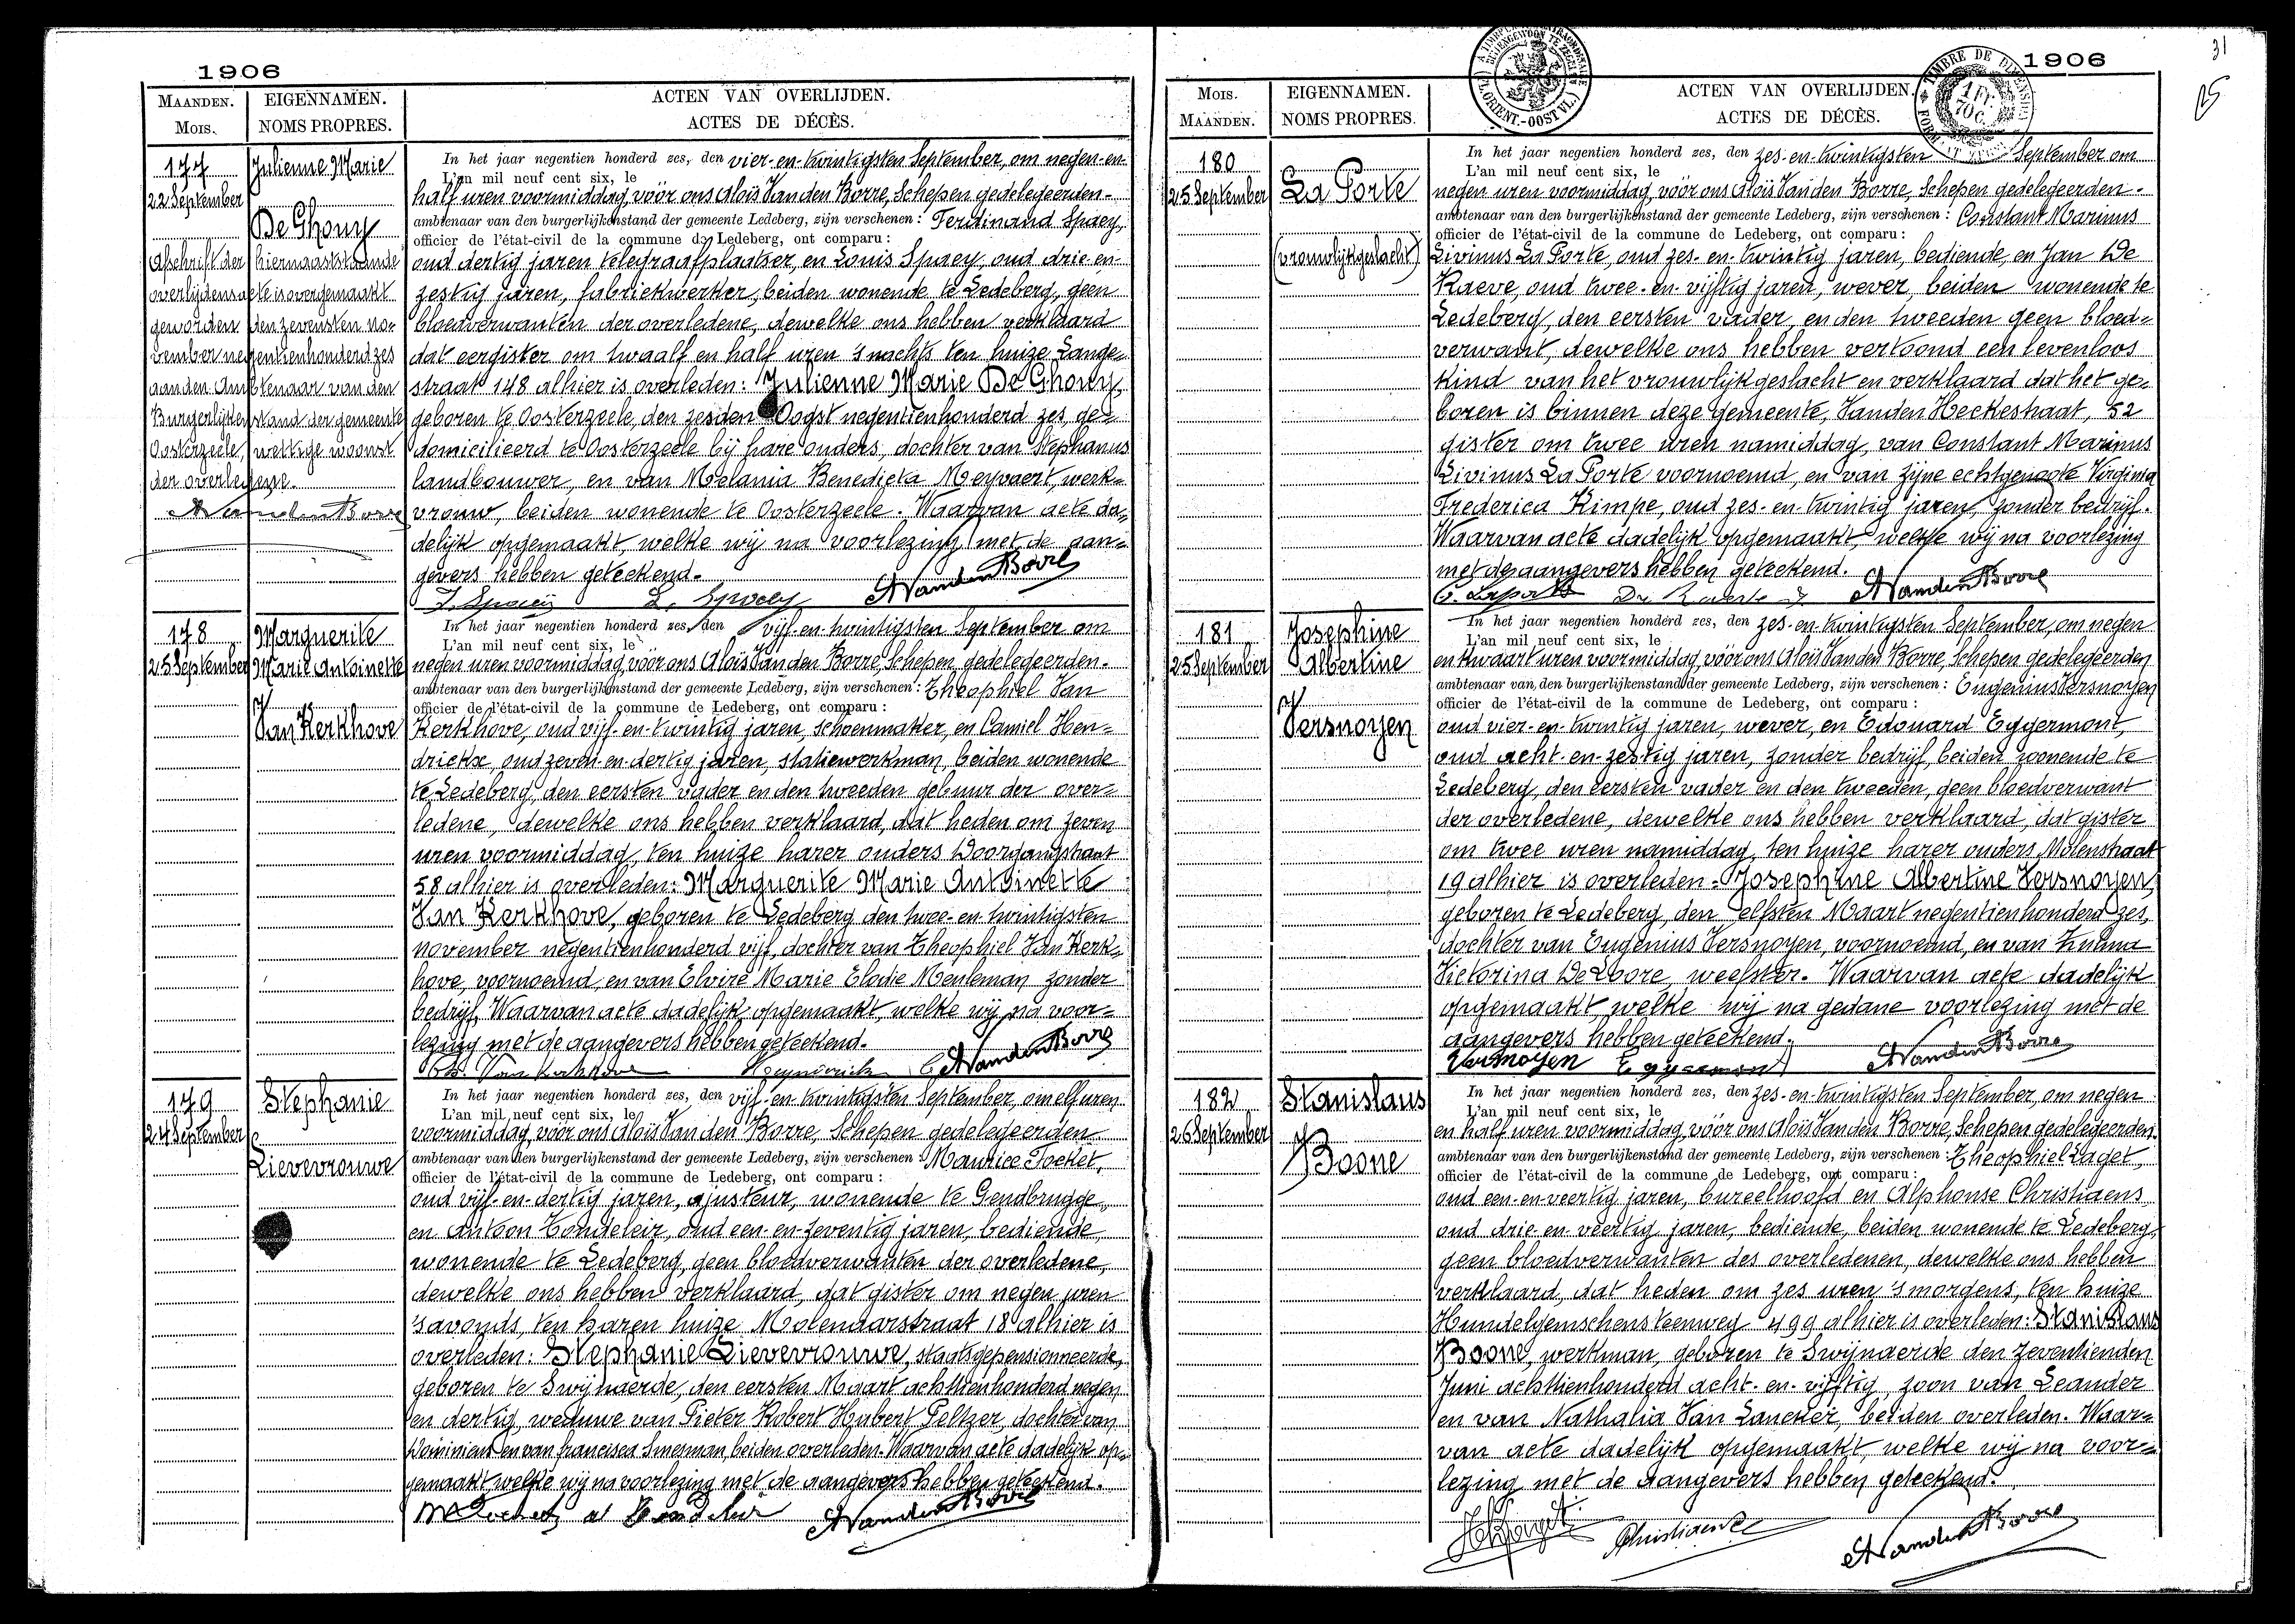 1906
MAANDEN.
MOIS.
EIGENNAMEN.
NOMS PROPRES.
ACTEN VAN OVERLIJDEN.
ACTES DE DÉCÈS.
177
22 September
Julienne Marie
De Ghouy
Afschrift der hiernaaststaande
overlijdensacte is overgemaakt
geworden den zevensten no-
vember negentienhonderd zes
aan den Ambtenaar van den
Burgerlijken stand der gemeente
Oosterzeele, wettige woonst
der overledene.
AVandenBorre
In het jaar negentien honderd zes, den vier-en-twintigsten September, om negen-en-
L'an mil neuf cent six, le
half uren voormiddag, vóór ons Aloïs Vanden Borre, Schepen gedelegeerden-
ambtenaar van den burgerlijkenstand der gemeente Ledeberg, zijn verschenen: Ferdinand Spaey,
officier de l'état-civil de la commune de Ledeberg, ont comparu:
oud dertig jaren telegraafplaatser, en Louis Spaey, oud drie-en-
zestig jaren, fabriekwerker, beiden wonende te Ledeberg, geen
bloedverwanten der overledene, dewelke ons hebben verklaard
dat eergister om twaalf en half uren 's nachts ten huize Lange-
straat 148 alhier is overleden: Julienne Marie De Ghouy,
geboren te Oosterzeele, den zesden Oogst negentienhonderd zes, ge-
domicilieerd te Oosterzeele bij hare ouders, dochter van Stephanus
landbouwer, en van Melania Benedicta Meyvaert, werk-
vrouw, beiden wonende te Oosterzeele. Waarvan acte da-
delijk opgemaakt, welke wij na voorlezing met de aan-
gevers hebben geteekend.
F. Spaey L. Spaey AVandenBorre
178
25 September
Marguerite
Marie Antoinette
Van Kerkhove
In het jaar negentien honderd zes, den vijf-en-twintigsten September om
L'an mil neuf cent six, le
negen uren voormiddag, vóór ons Aloïs Vanden Borre, Schepen gedelegeerden-
ambtenaar van den burgerlijkenstand der gemeente Ledeberg, zijn verschenen: Theophiel Van
officier de l'état-civil de la commune de Ledeberg, ont comparu:
Kerkhove, oud vijf-en-twintig jaren, schoenmaker, en Camiel Hen-
drickx, oud zeven-en-dertig jaren, statiewerkman, beiden wonende
te Ledeberg, den eersten vader en den tweeden gebuur der over-
ledene, dewelke ons hebben verklaard, dat heden om zeven
uren voormiddag, ten huize harer ouders Doorgangstraat
58 alhier is overleden: Marguerite Marie Antoinette
Van Kerkhove, geboren te Ledeberg den twee-en-twintigsten
november negentienhonderd vijf, dochter van Theophiel Van Kerk-
hove, voornoemd, en van Elvire Marie Elodie Meuleman zonder
bedrijf. Waarvan acte dadelijk opgemaakt, welke wij na voor-
lezing met de aangevers hebben geteekend.
Th. Van Kerkhove C AVandenBorre
179
24 September
Stephanie
Lievevrouwe
In het jaar negentien honderd zes, den vijf-en-twintigsten September, om elf uren
L'an mil neuf cent six, le
voormiddag, vóór ons Aloïs Vanden Borre, Schepen gedelegeerden
ambtenaar van den burgerlijkenstand der gemeente Ledeberg, zijn verschenen: Maurice Focket,
officier de l'état-civil de la commune de Ledeberg, ont comparu:
oud vijf-en-dertig jaren, ajusteur, wonende te Gendbrugge,
en Antoon Tondeleir, oud een-en-zeventig jaren, bediende,
wonende te Ledeberg, geen bloedverwanten der overledene,
dewelke ons hebben verklaard, dat gister om negen uren
's avonds, ten haren huize Molenaarstraat 18 alhier is
overleden: Stephanie Lievevrouwe, staatsgepensionneerde,
geboren te Swijnaerde, den eersten Maart achttienhonderd negen
en dertig, weduwe van Pieter Robert Hubert Peltzer, dochter van
Dominicus en van francisca Smesman, beiden overleden. Waarvan acte dadelijk op-
gemaakt welke wij na voorlezing met de aangevers hebben geteekend.
AVandenBorre
31
25
1906
TIMBRE DE DIMENSION
1 FR.
70 C.
(FL. ORIENT.-OOST VL.)
MOIS.
MAANDEN.
EIGENNAMEN.
NOMS PROPRES.
ACTEN VAN OVERLIJDEN.
ACTES DE DÉCÈS.
180
25 September
La Porte
(vrouwlijkgeslacht)
In het jaar negentien honderd zes, den zes-en-twintigsten September om
L'an mil neuf cent six, le
negen uren voormiddag, vóór ons Aloïs Vanden Borre, Schepen gedelegeerden-
ambtenaar van den burgerlijkenstand der gemeente Ledeberg, zijn verschenen: Constant Marinus
officier de l'état-civil de la commune de Ledeberg, ont comparu:
Livinus La Porte, oud zes-en-twintig jaren, bediende, en Jan De
Raeve, oud twee-en-vijftig jaren, wever, beiden wonende te
Ledeberg, den eersten vader, en den tweeden geen bloed-
verwant, dewelke ons hebben vertoond een levenloos
kind van het vrouwlijkgeslacht en verklaard dat het ge-
boren is binnen deze gemeente, Vanden Heckestraat, 52
gister om twee uren namiddag, van Constant Marinus
Livinus La Porte voornoemd, en van zijne echtgenoote Virginia
Frederica Kimpe, oud zes-en-twintig jaren, zonder bedrijf.
Waarvan acte dadelijk opgemaakt, welke wij na voorlezing
met de aangevers hebben geteekend.
C. Laporte AVandenBorre
181
25 September
Josephine
Albertine
Versnoyen
In het jaar negentien honderd zes, den zes-en-twintigsten September, om negen
L'an mil neuf cent six, le
en kwaart uren voormiddag, vóór ons Aloïs Vanden Borre, Schepen gedelegeerden
ambtenaar van den burgerlijkenstand der gemeente Ledeberg, zijn verschenen: Eugenius Versnoyen
officier de l'état-civil de la commune de Ledeberg, ont comparu:
oud vier-en-twintig jaren, wever, en Edouard Eggermont,
oud acht-en-zestig jaren, zonder bedrijf, beiden wonende te
Ledeberg, den eersten vader en den tweeden, geen bloedverwant
der overledene, dewelke ons hebben verklaard, dat gister
om twee uren namiddag, ten huize harer ouders Molenstraat
19 alhier is overleden: Josephine Albertine Versnoyen,
geboren te Ledeberg, den elfsten Maart negentienhonderd zes,
dochter van Eugenius Versnoyen, voornoemd, en van Zulma
Victorina De Loore, weefster. Waarvan acte dadelijk
opgemaakt, welke wij na gedane voorlezing met de
aangevers hebben geteekend.
Versnoyen Eggermont AVandenBorre
182
26 September
Stanislaus
Boone
In het jaar negentien honderd zes, den zes-en-twintigsten September, om negen
L'an mil neuf cent six, le
en half uren voormiddag, vóór ons Aloïs Vanden Borre, Schepen gedelegeerden
ambtenaar van den burgerlijkenstand der gemeente Ledeberg, zijn verschenen: Theophiel Laget,
officier de l'état-civil de la commune de Ledeberg, ont comparu:
oud een-en-veertig jaren, bureelhoofd en Alphonse Christiaens
oud drie-en-veertig jaren, bediende, beiden wonende te Ledeberg,
geen bloedverwanten des overledenen, dewelke ons hebben
verklaard, dat heden om zes uren 's morgens, ten huize
Hundelgemschensteenweg 499 alhier is overleden: Stanislaus
Boone, werkman, geboren te Swijnaerde den zeventienden
Juni achttienhonderd acht-en-vijftig, zoon van Leander
en van Nathalia Van Lancker, beiden overleden. Waar-
van acte dadelijk opgemaakt, welke wij na voor-
lezing met de aangevers hebben geteekend.
Christiaens AVandenBorre